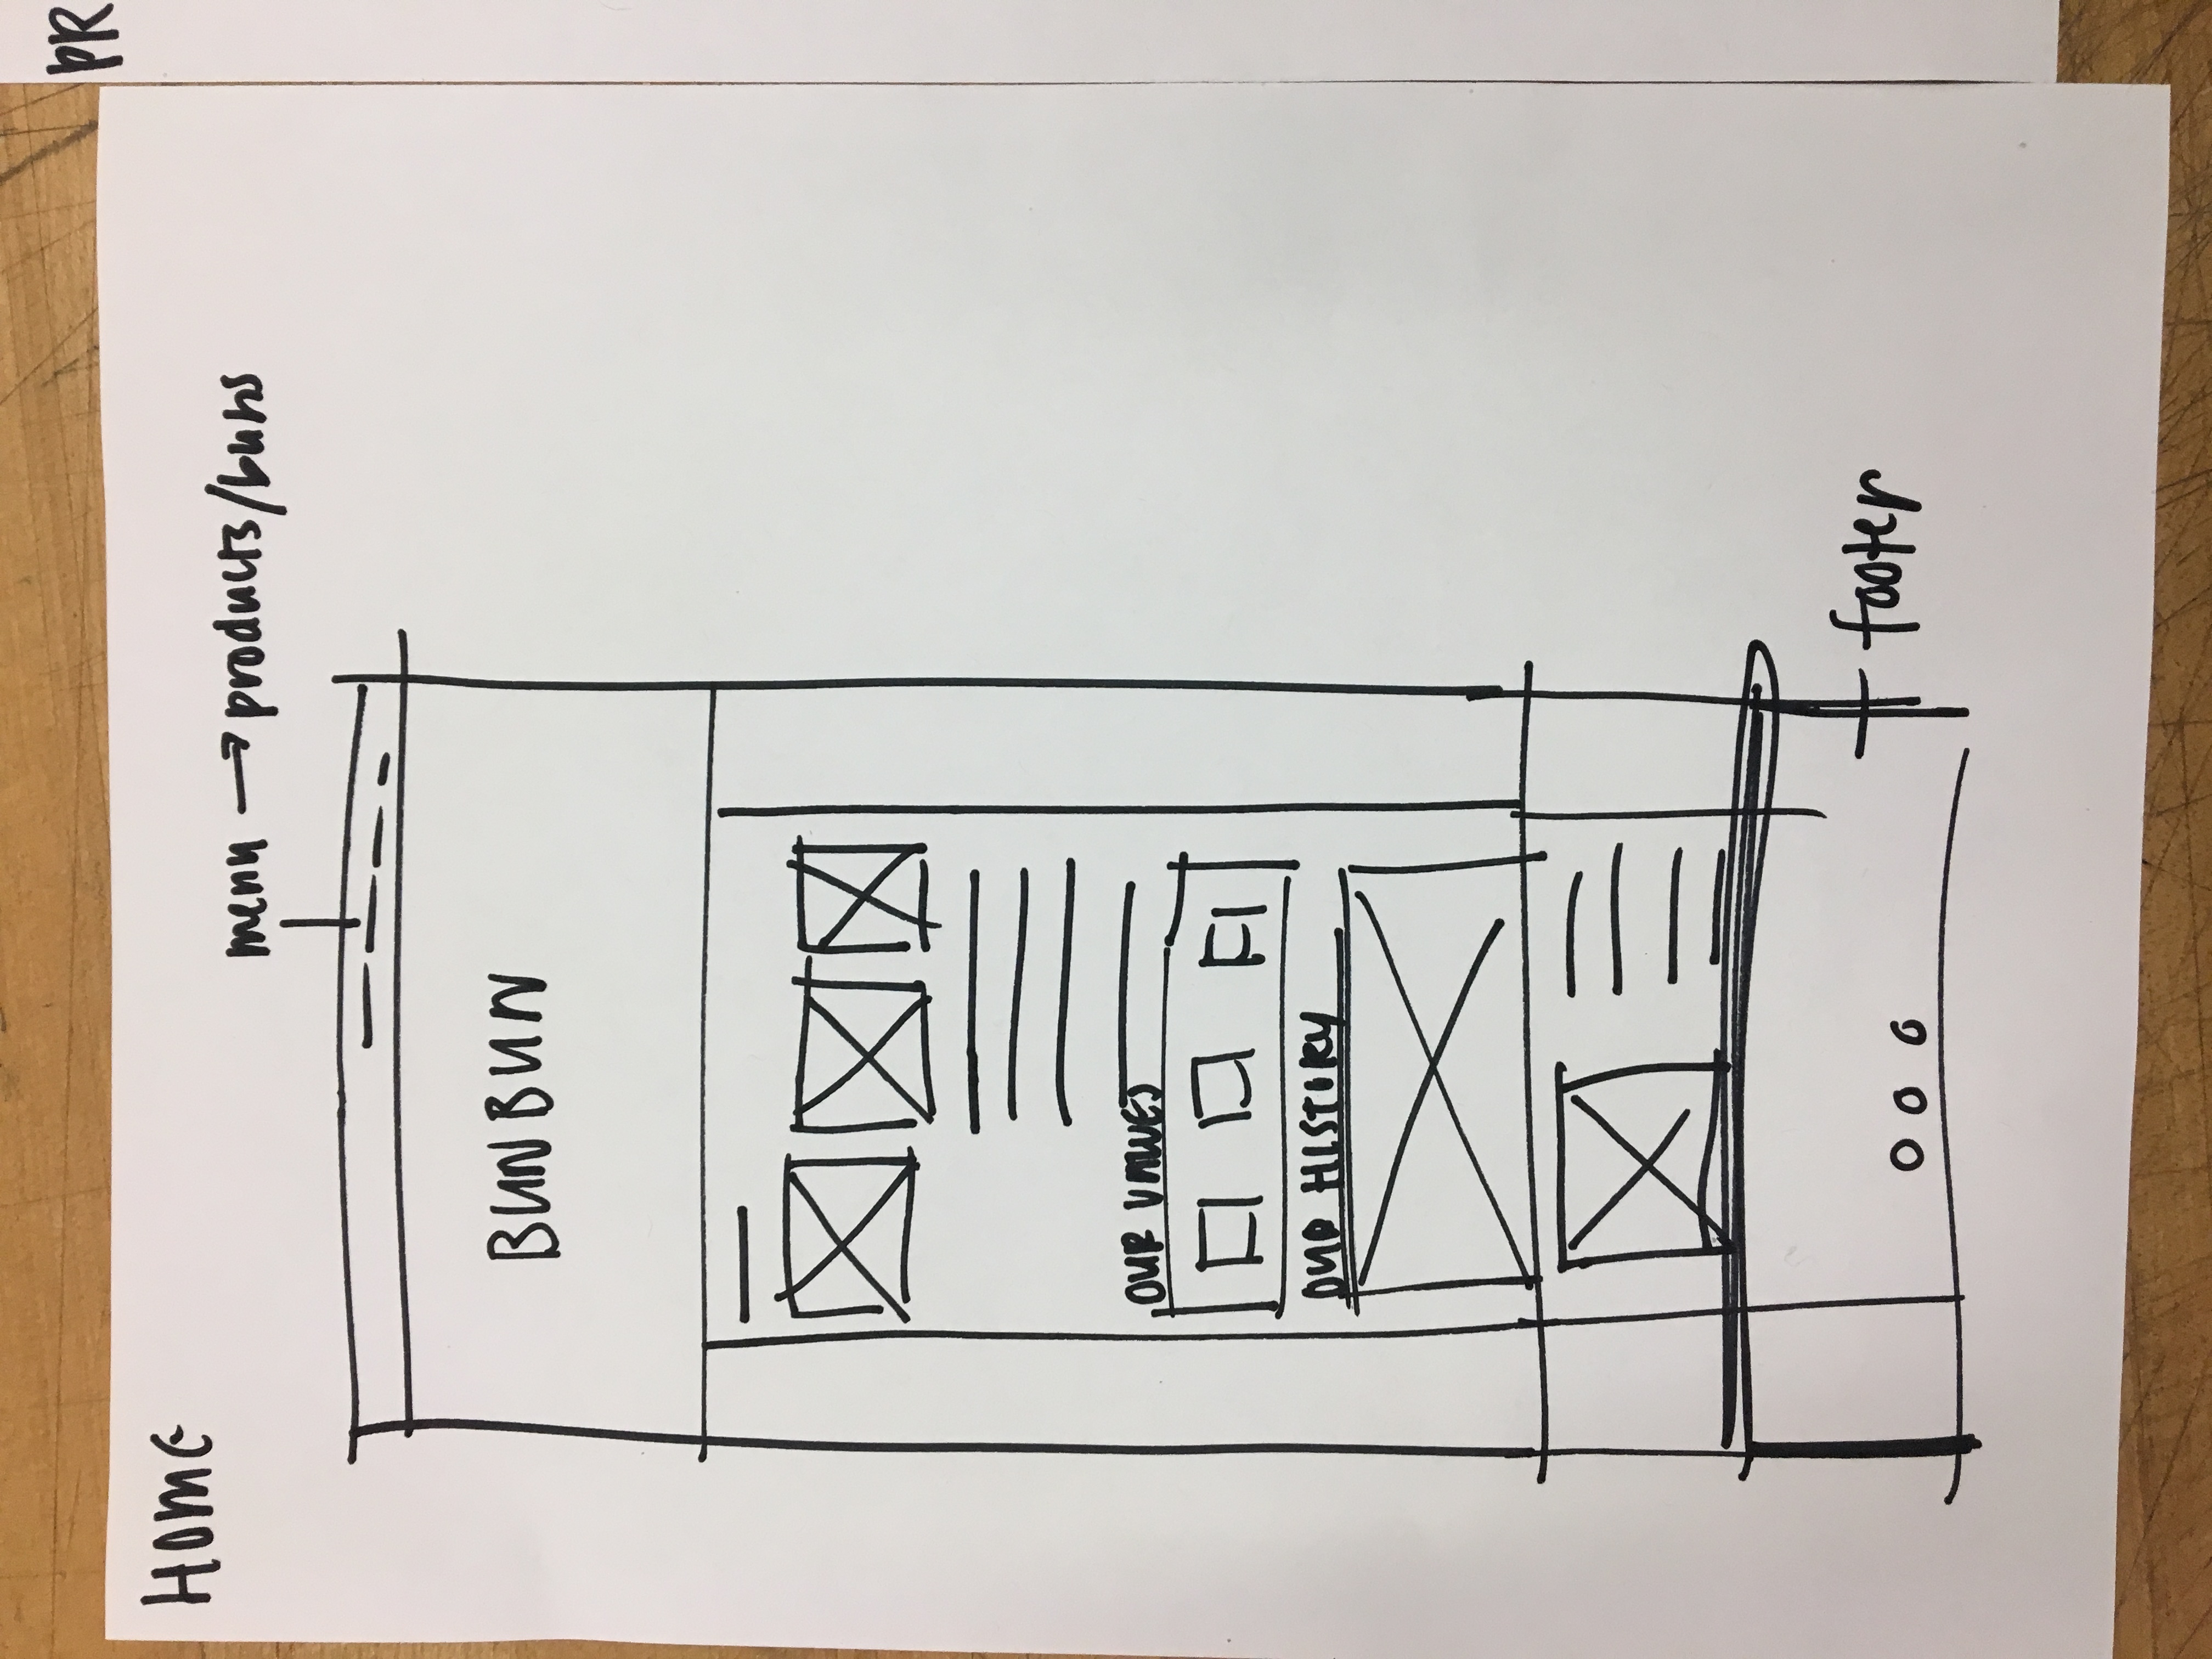 HOME
PR
menu → products/buns
BUNBUN
OUR VALUES
OUR HISTORY
footer